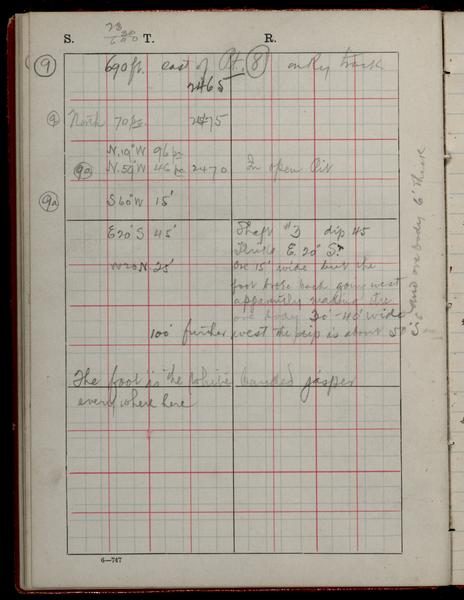 S. T. R.
23
30
6 20
9 690 ft. east of Pt. 8 on Ry track
2465
9 North 70 pc. 2475
N.19°W 96 pc
9a N.59°W 46 pc 2470 In open Pit
9a S60°W 15'
E20°S 45' Shaft #3 dip 45
Strike E. 20° S.
W20N. 25' Ore 15' wide but the
foot broke back going west
apparently making the
ore body 30'-40' wide
100' further west the dip is about 50°
The foot is the white banded jasper
everywhere here
and ore body 6' thick
6—747